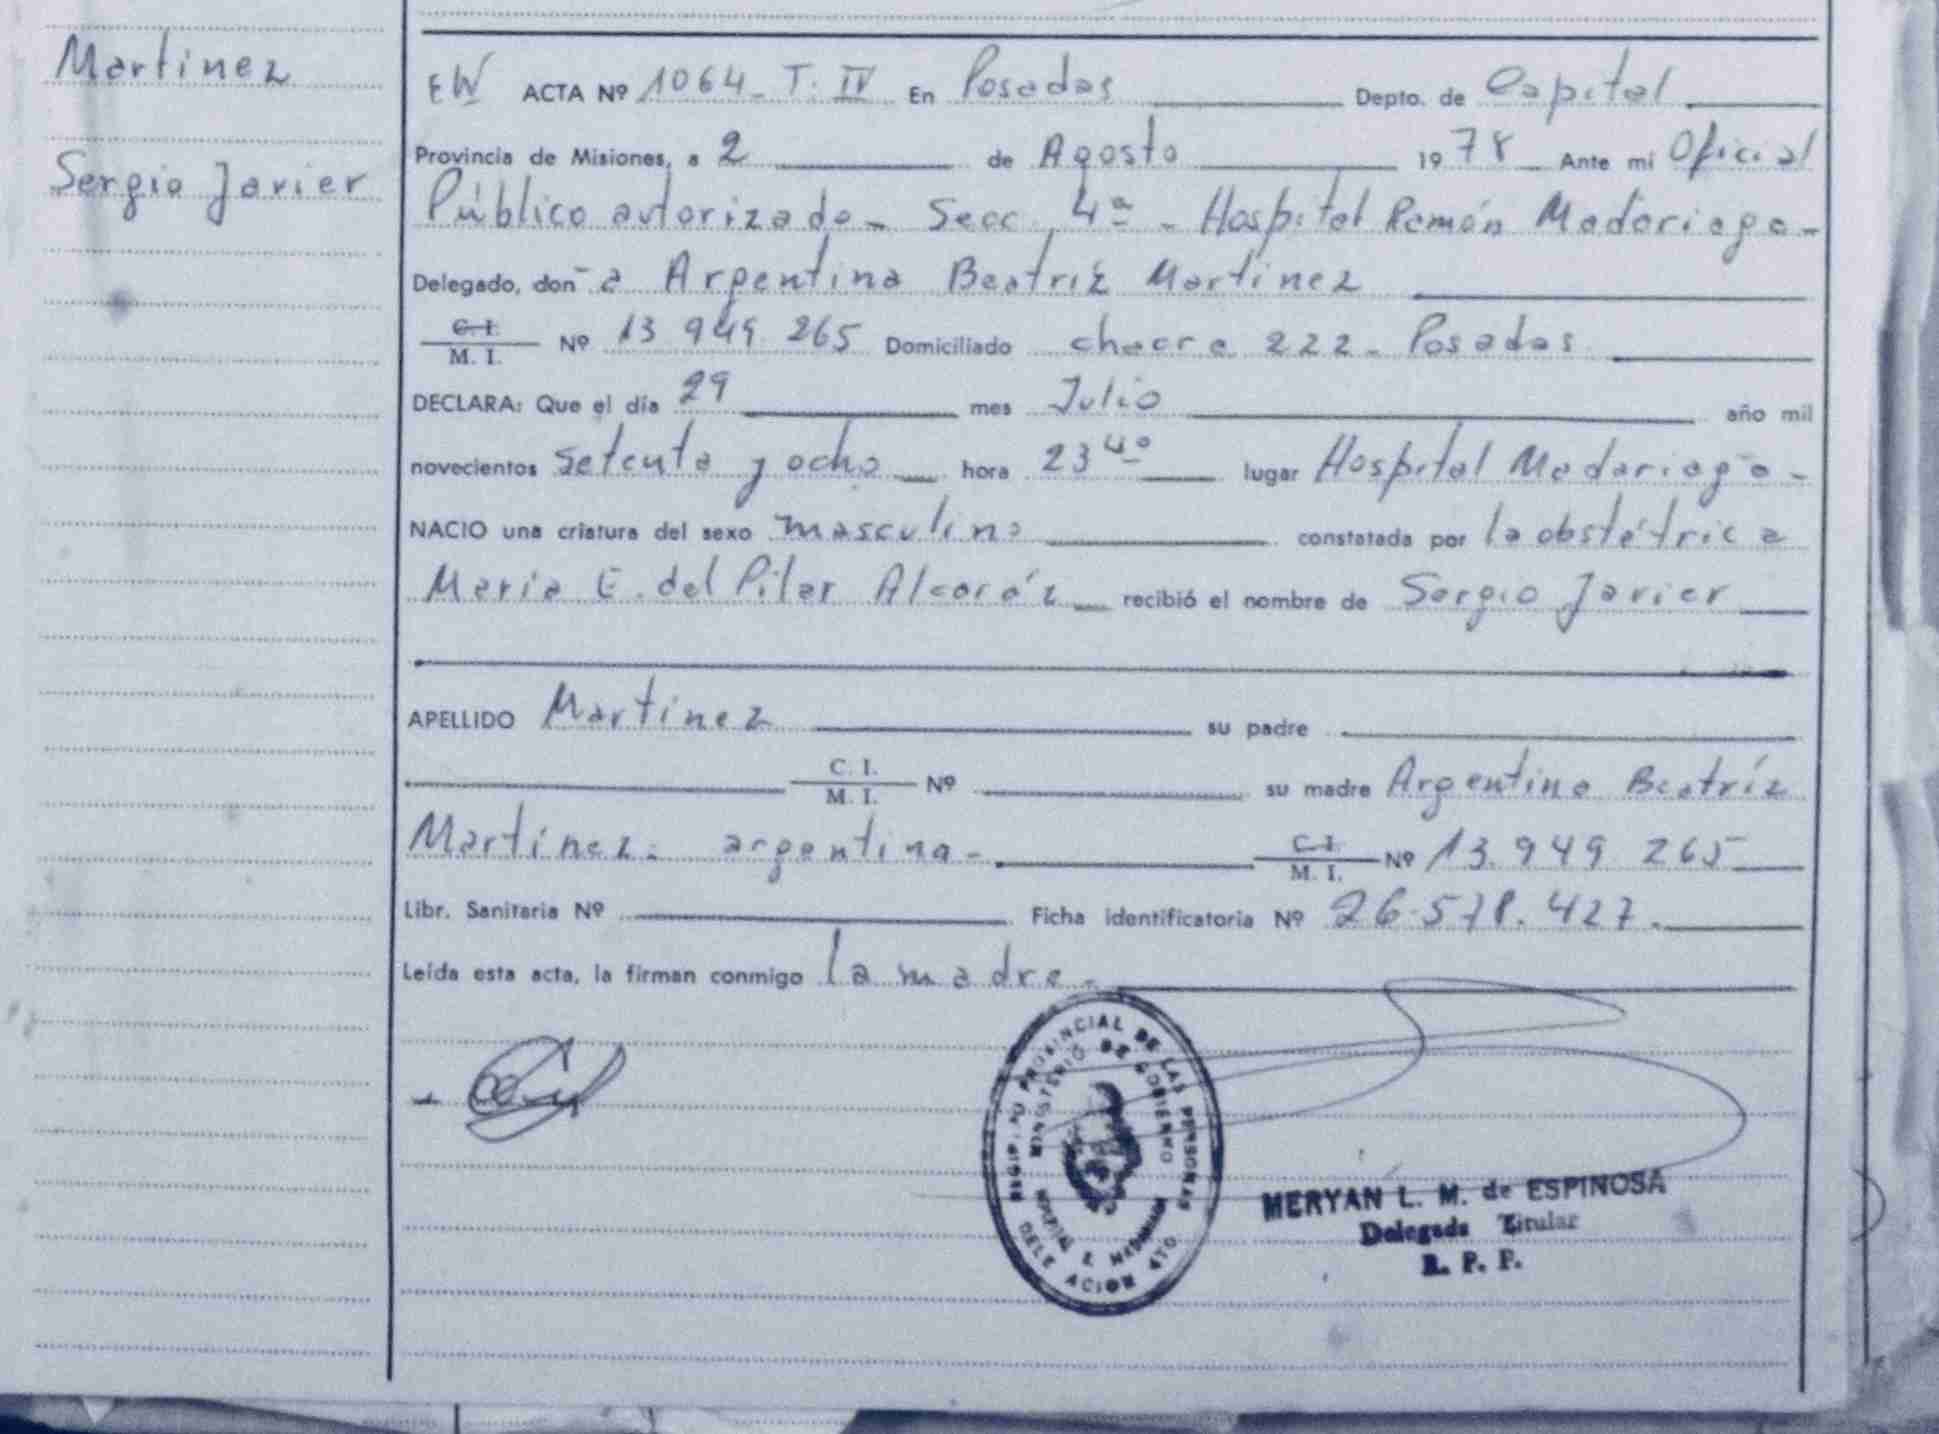 Martinez
Sergio Javier
EW ACTA Nº 1064_ T. IV En Posadas Depto. de Capital
Provincia de Misiones, a 2 de Agosto 1978 Ante mi Oficial
Público autorizado_ Secc. 4ª - Hospital Ramón Madariaga-
Delegado, don-a Argentina Beatríz Martínez
C. I.
M. I.
Nº 13 949 265 Domiciliado chacra 222- Posadas
DECLARA: Que el día 29 mes Julio año mil
novecientos setenta y ocho hora 23 40 lugar Hospital Madariaga-
NACIO una criatura del sexo masculino constatada por la obstétrica
María E. del Pilar Alcoráz recibió el nombre de Sergio Javier
APELLIDO Martinez su padre
C. I.
M. I.
Nº su madre Argentina Beatríz
Martínez. argentina- C. I.
M. I.
Nº 13.949 265
Libr. Sanitaria Nº Ficha identificatoria Nº 26.578.427.
Leída esta acta, la firman conmigo la madre-
PROVINCIAL DE LAS PERSONAS
MINISTERIO DE GOBIERNO
HOSPITAL R. MADARIAGA
DELEGACION 4TO
MERYAN L. M. de ESPINOSA
Delegada Titular
R. P. P.